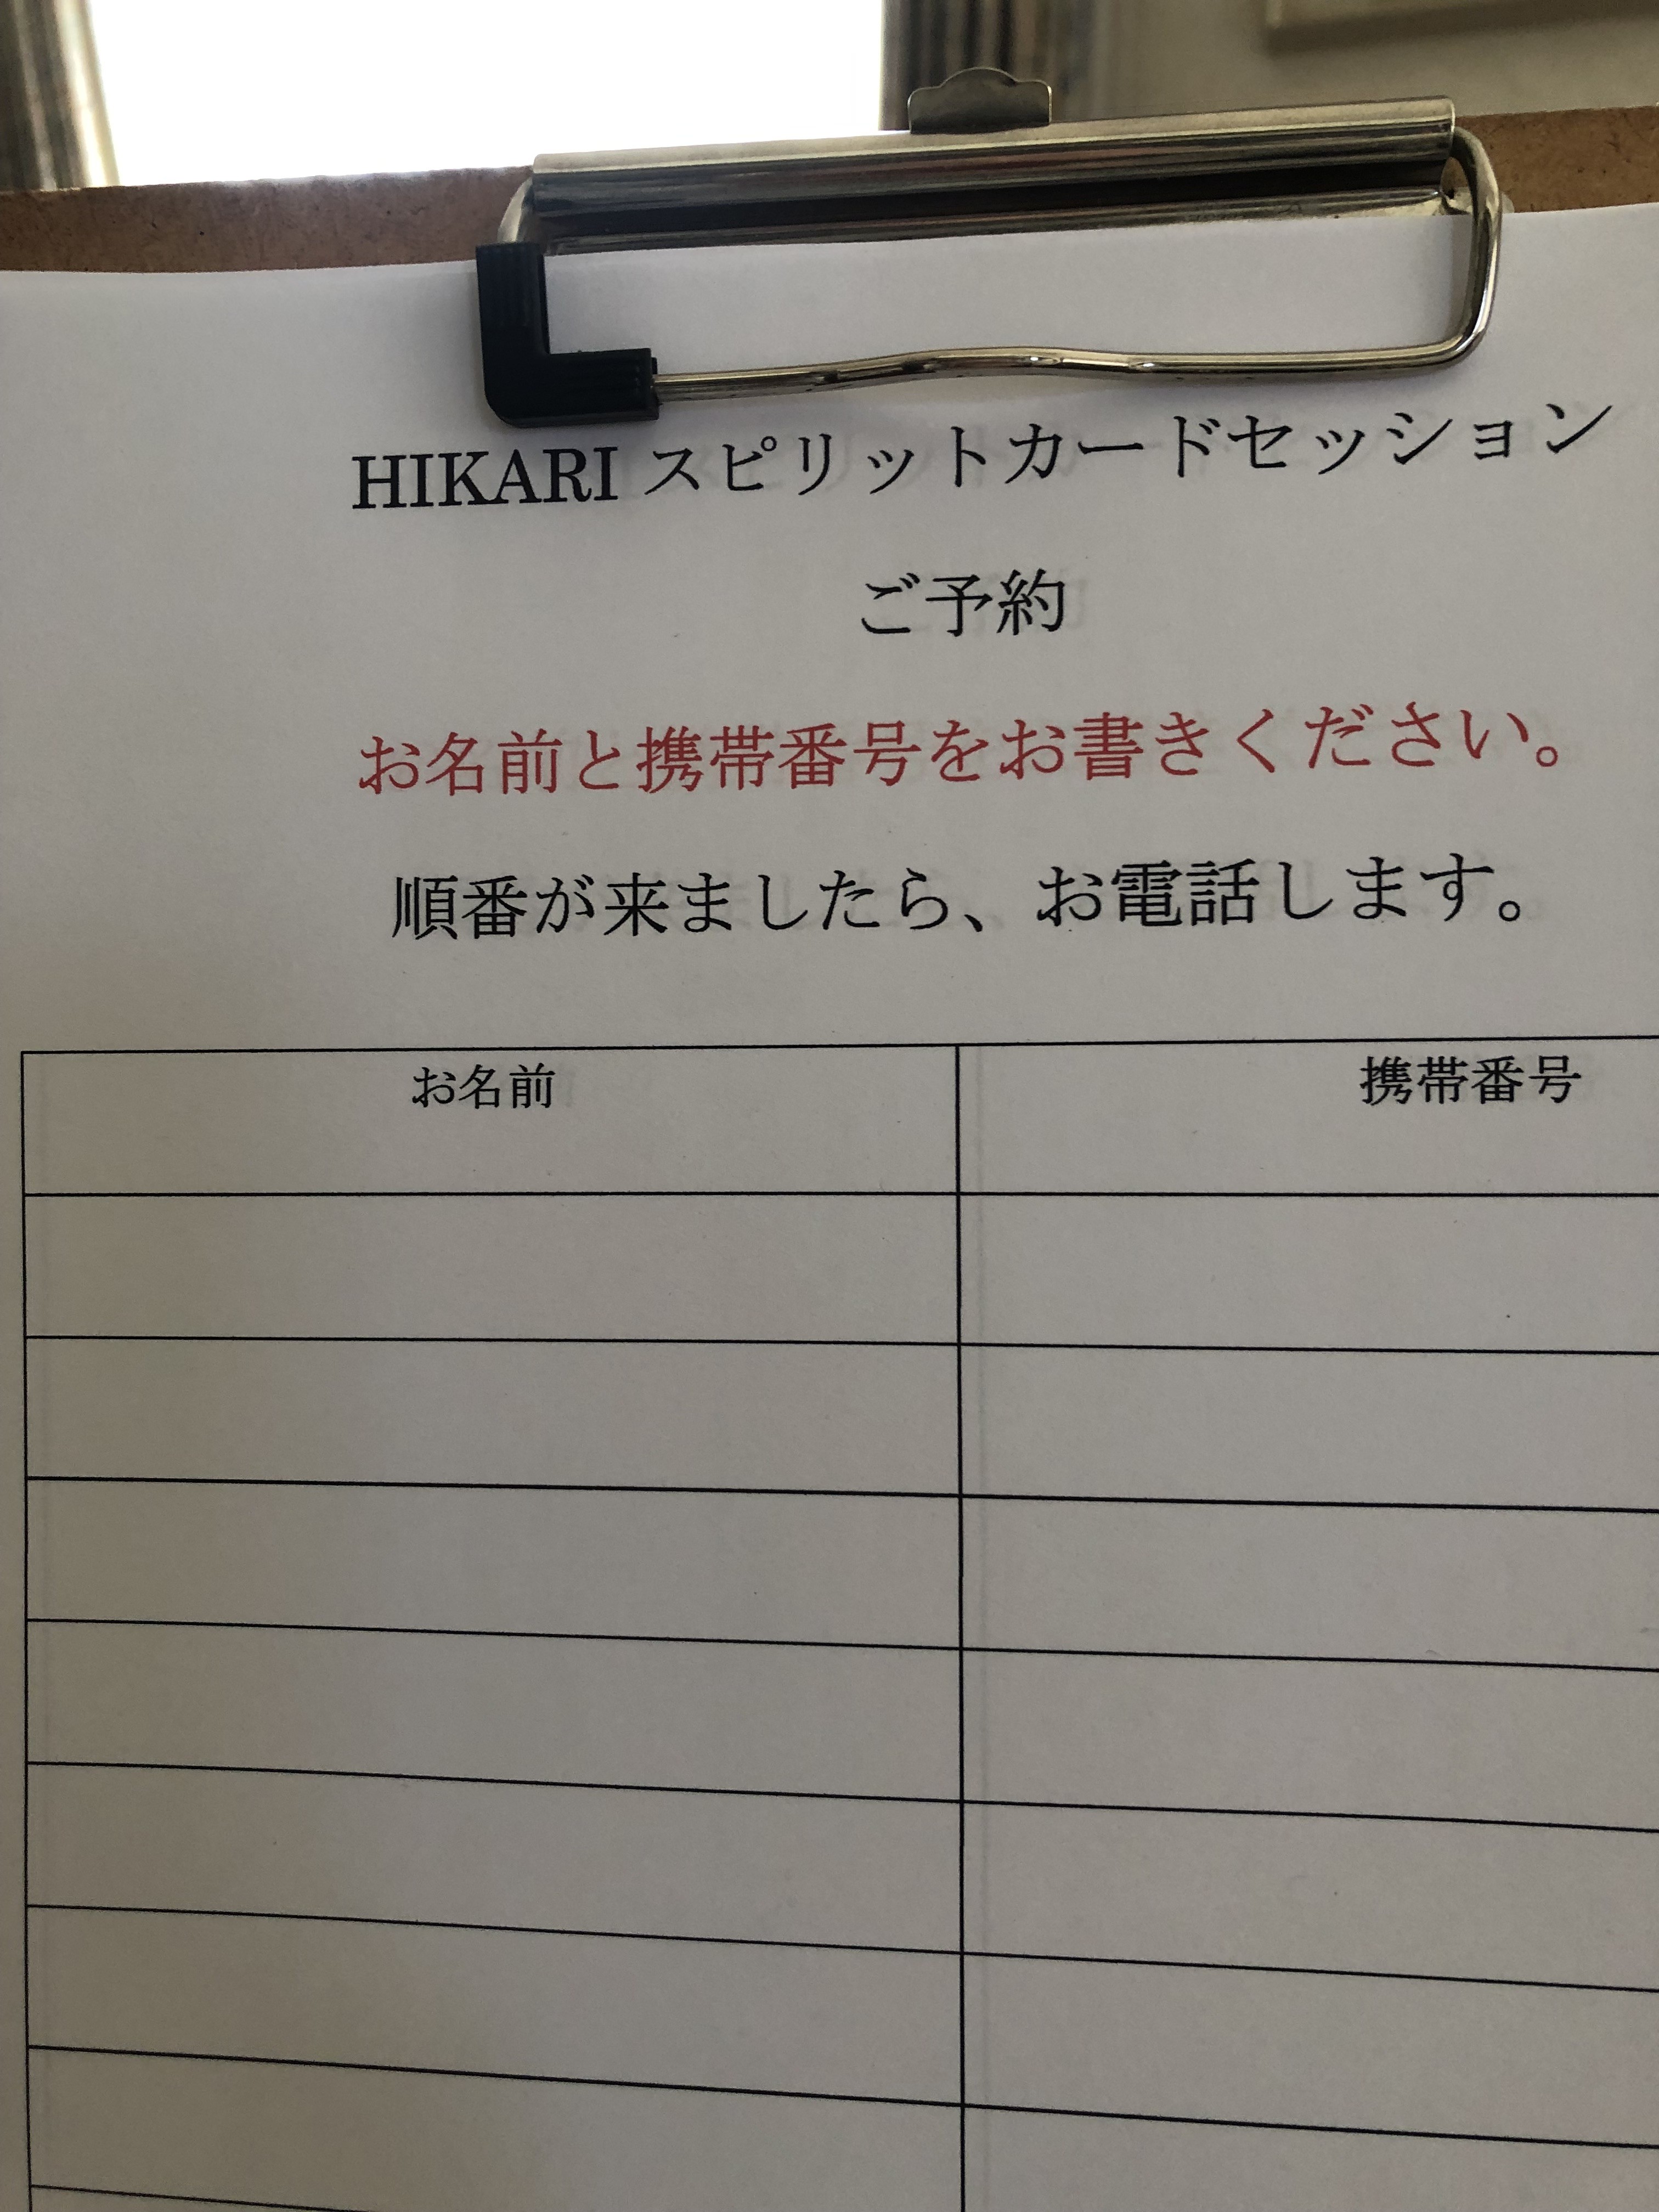 HIKARI スピリットカードセッション
ご予約
お名前と携帯番号をお書きください。
順番が来ましたら、お電話します。
お名前 携帯番号